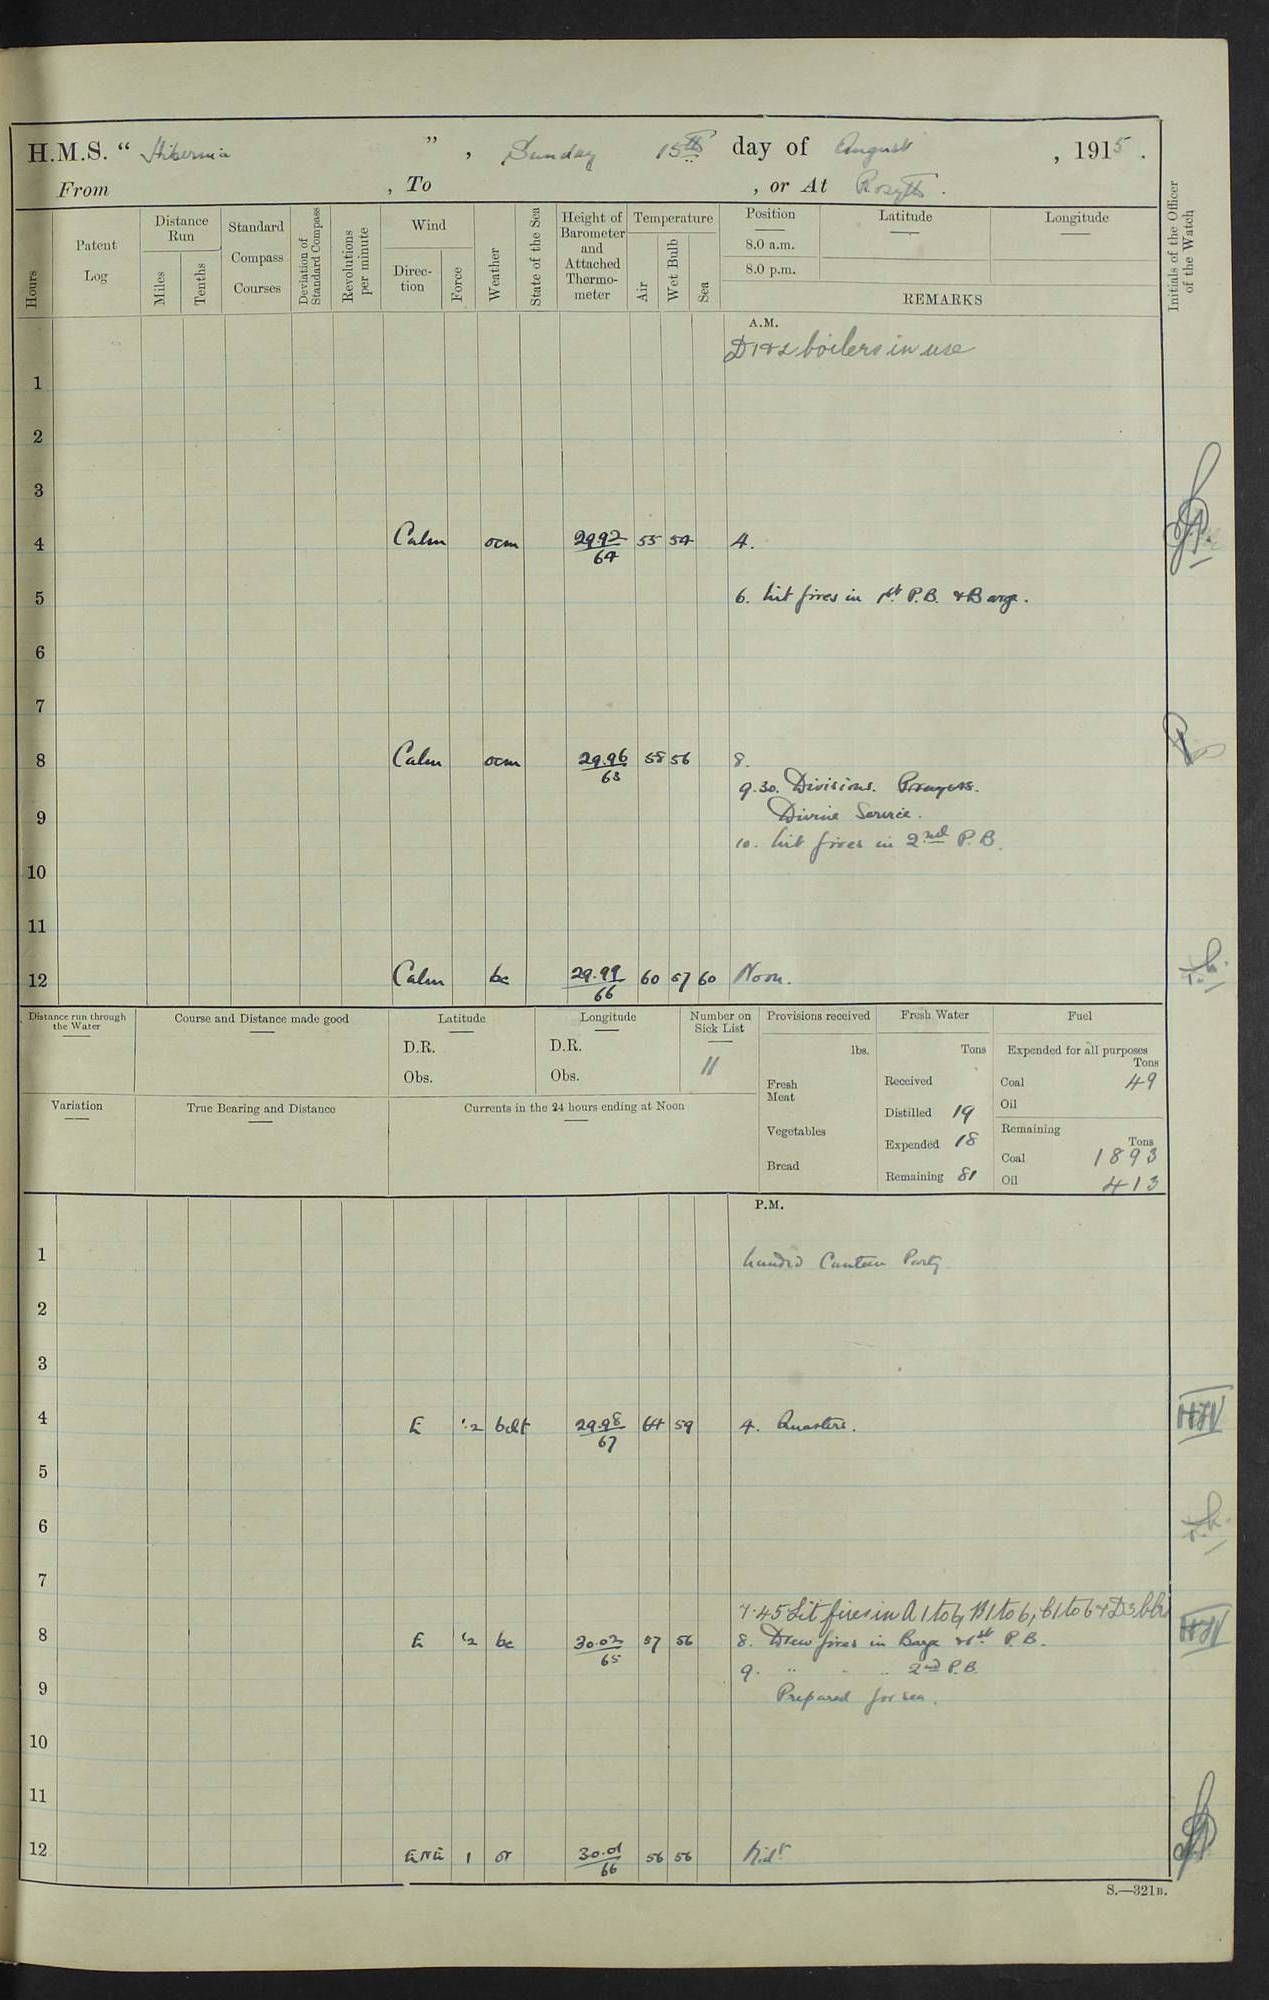 H.M.S. “ Hibernia ” , Sunday 15th day of August , 1915 .
From , To , or At Rosyth .
Hours
Patent Log
Distance Run
Miles
Tenths
Standard Compass Courses
Deviation of Standard Compass
Revolutions per minute
Wind
Direction
Force
Weather
State of the Sea
Height of Barometer and Attached Thermometer
Temperature
Air
Wet Bulb
Sea
Position
8.0 a.m.
8.0 p.m.
Latitude
Longitude
REMARKS
Initials of the Officer of the Watch
A.M.
D 1 & 2 boilers in use
1
2
3
4 Calm ocm 29.92/64 55 54 4.
5
6. Lit fires in 1st P.B. & Barge.
6
7
8 Calm ocm 29.96/63 58 56 8.
9.30. Divisions. Prayers.
9 Divine Service.
10. Lit fires in 2nd P.B.
10
11
12 Calm bc 29.99/66 60 57 60 Noon.
Distance run through the Water
Course and Distance made good
Latitude
D.R.
Obs.
Longitude
D.R.
Obs.
Number on Sick List
11
Provisions received
lbs.
Fresh Meat
Vegetables
Bread
Fresh Water
Tons
Received
Distilled 19
Expended 18
Remaining 81
Fuel
Expended for all purposes
Tons
Coal 49
Oil
Remaining
Tons
Coal 1893
Oil 413
Variation
True Bearing and Distance
Currents in the 24 hours ending at Noon
P.M.
1 Landed Canteen Party
2
3
4 E 1.2 29.98/67 64 59 4. Quarters. HJV
5
6
7
7.45 Lit fires in A 1 to 6, B 1 to 6, C 1 to 6 & D 3
8 E 1.2 bc 30.02/65 57 56 8. Drew fires in Barge & 1st P.B. HJV
9. " " " 2nd P.B.
9 Prepared for sea.
10
11
12 ENE 1 or 30.01/66 56 56 Midt
S.—321B.